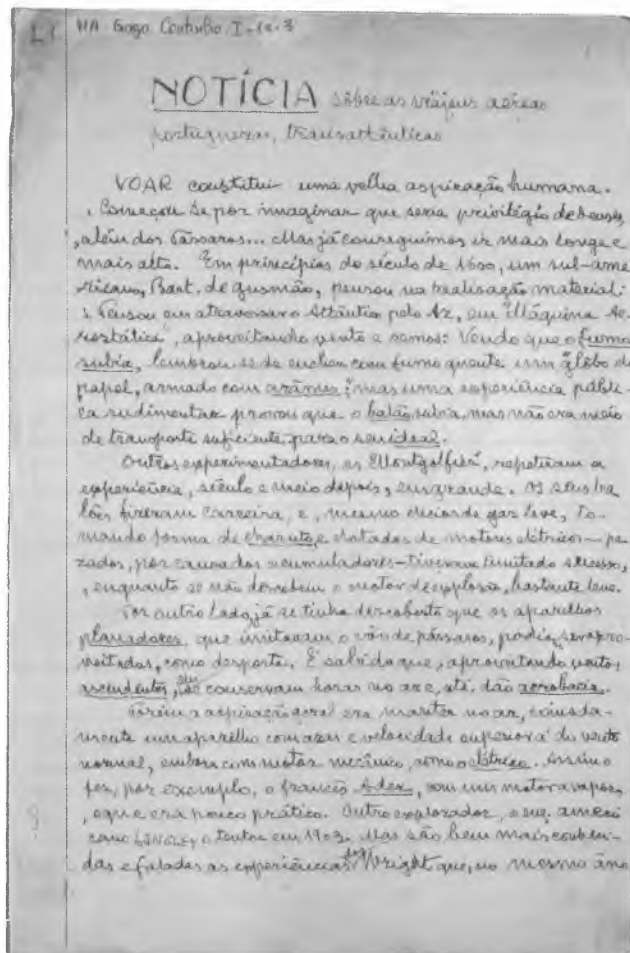 L1 MA. Gago Coutinho I-1a-3
NOTÍCIA sôbre as viajens aéreas
portuguezas, transatlânticas
VOAR constitui uma velha aspiração humana.
Começou se por imaginar que seria privilégio de deuses,
, além dos Pássaros... Mas já conseguimos ir mais longe e
mais alto. Em princípios do século de 1600, um sul-ame
ricano, Bart. de gusmão, pensou na realisação material:
: Pensou em atravessar o Atlântico pelo Az, em "Máquina Ae-
rostática", aproveitando vento e remos: Vendo que o fumo
subia, lembrou-se de encher com fumo quente um "glôbo de
papel, armado com arâmes"; mas uma experiência públi-
ca rudimentar provou que o balão subia, mas não era meio
de transporte suficiente para o seu ideal.
Outros experimentadores, os Montgolfier, repetiram a
experiência, século e meio depois, em grande. Os seus ba
lões fizeram carreira, e, mesmo cheios de gaz leve, to-
mando forma de charuto, e dotados de motores elétricos — pe-
zados, por causa dos acumuladores — tiveram limitado sucesso,
, enquanto se não descobriu o motor de explosão, bastante leve.
Por outro lado, já se tinha descoberto que os aparelhos
planadores, que imitavam o vôo de pássaros, podiam ser apro-
veitados, como desporto. É sabido que, aproveitando ventos
ascendentes, êles conservam horas no are, até dão acrobacia.
Porém a aspiração geral era manter no ar, cousada-
mente um aparelho com azas e velocidade superior á do vento
normal, embora com motor mecânico, como o elétrico. Assim o
fez, por exemplo, o francês Ader, com um motor a vapor,
, o que era pouco prático. Outro explorador, o eng. ameri
cano LANGLEY o tentou em 1903. Mas são bem mais conheci-
das e faladas as experiências dos Wright que, no mesmo âno